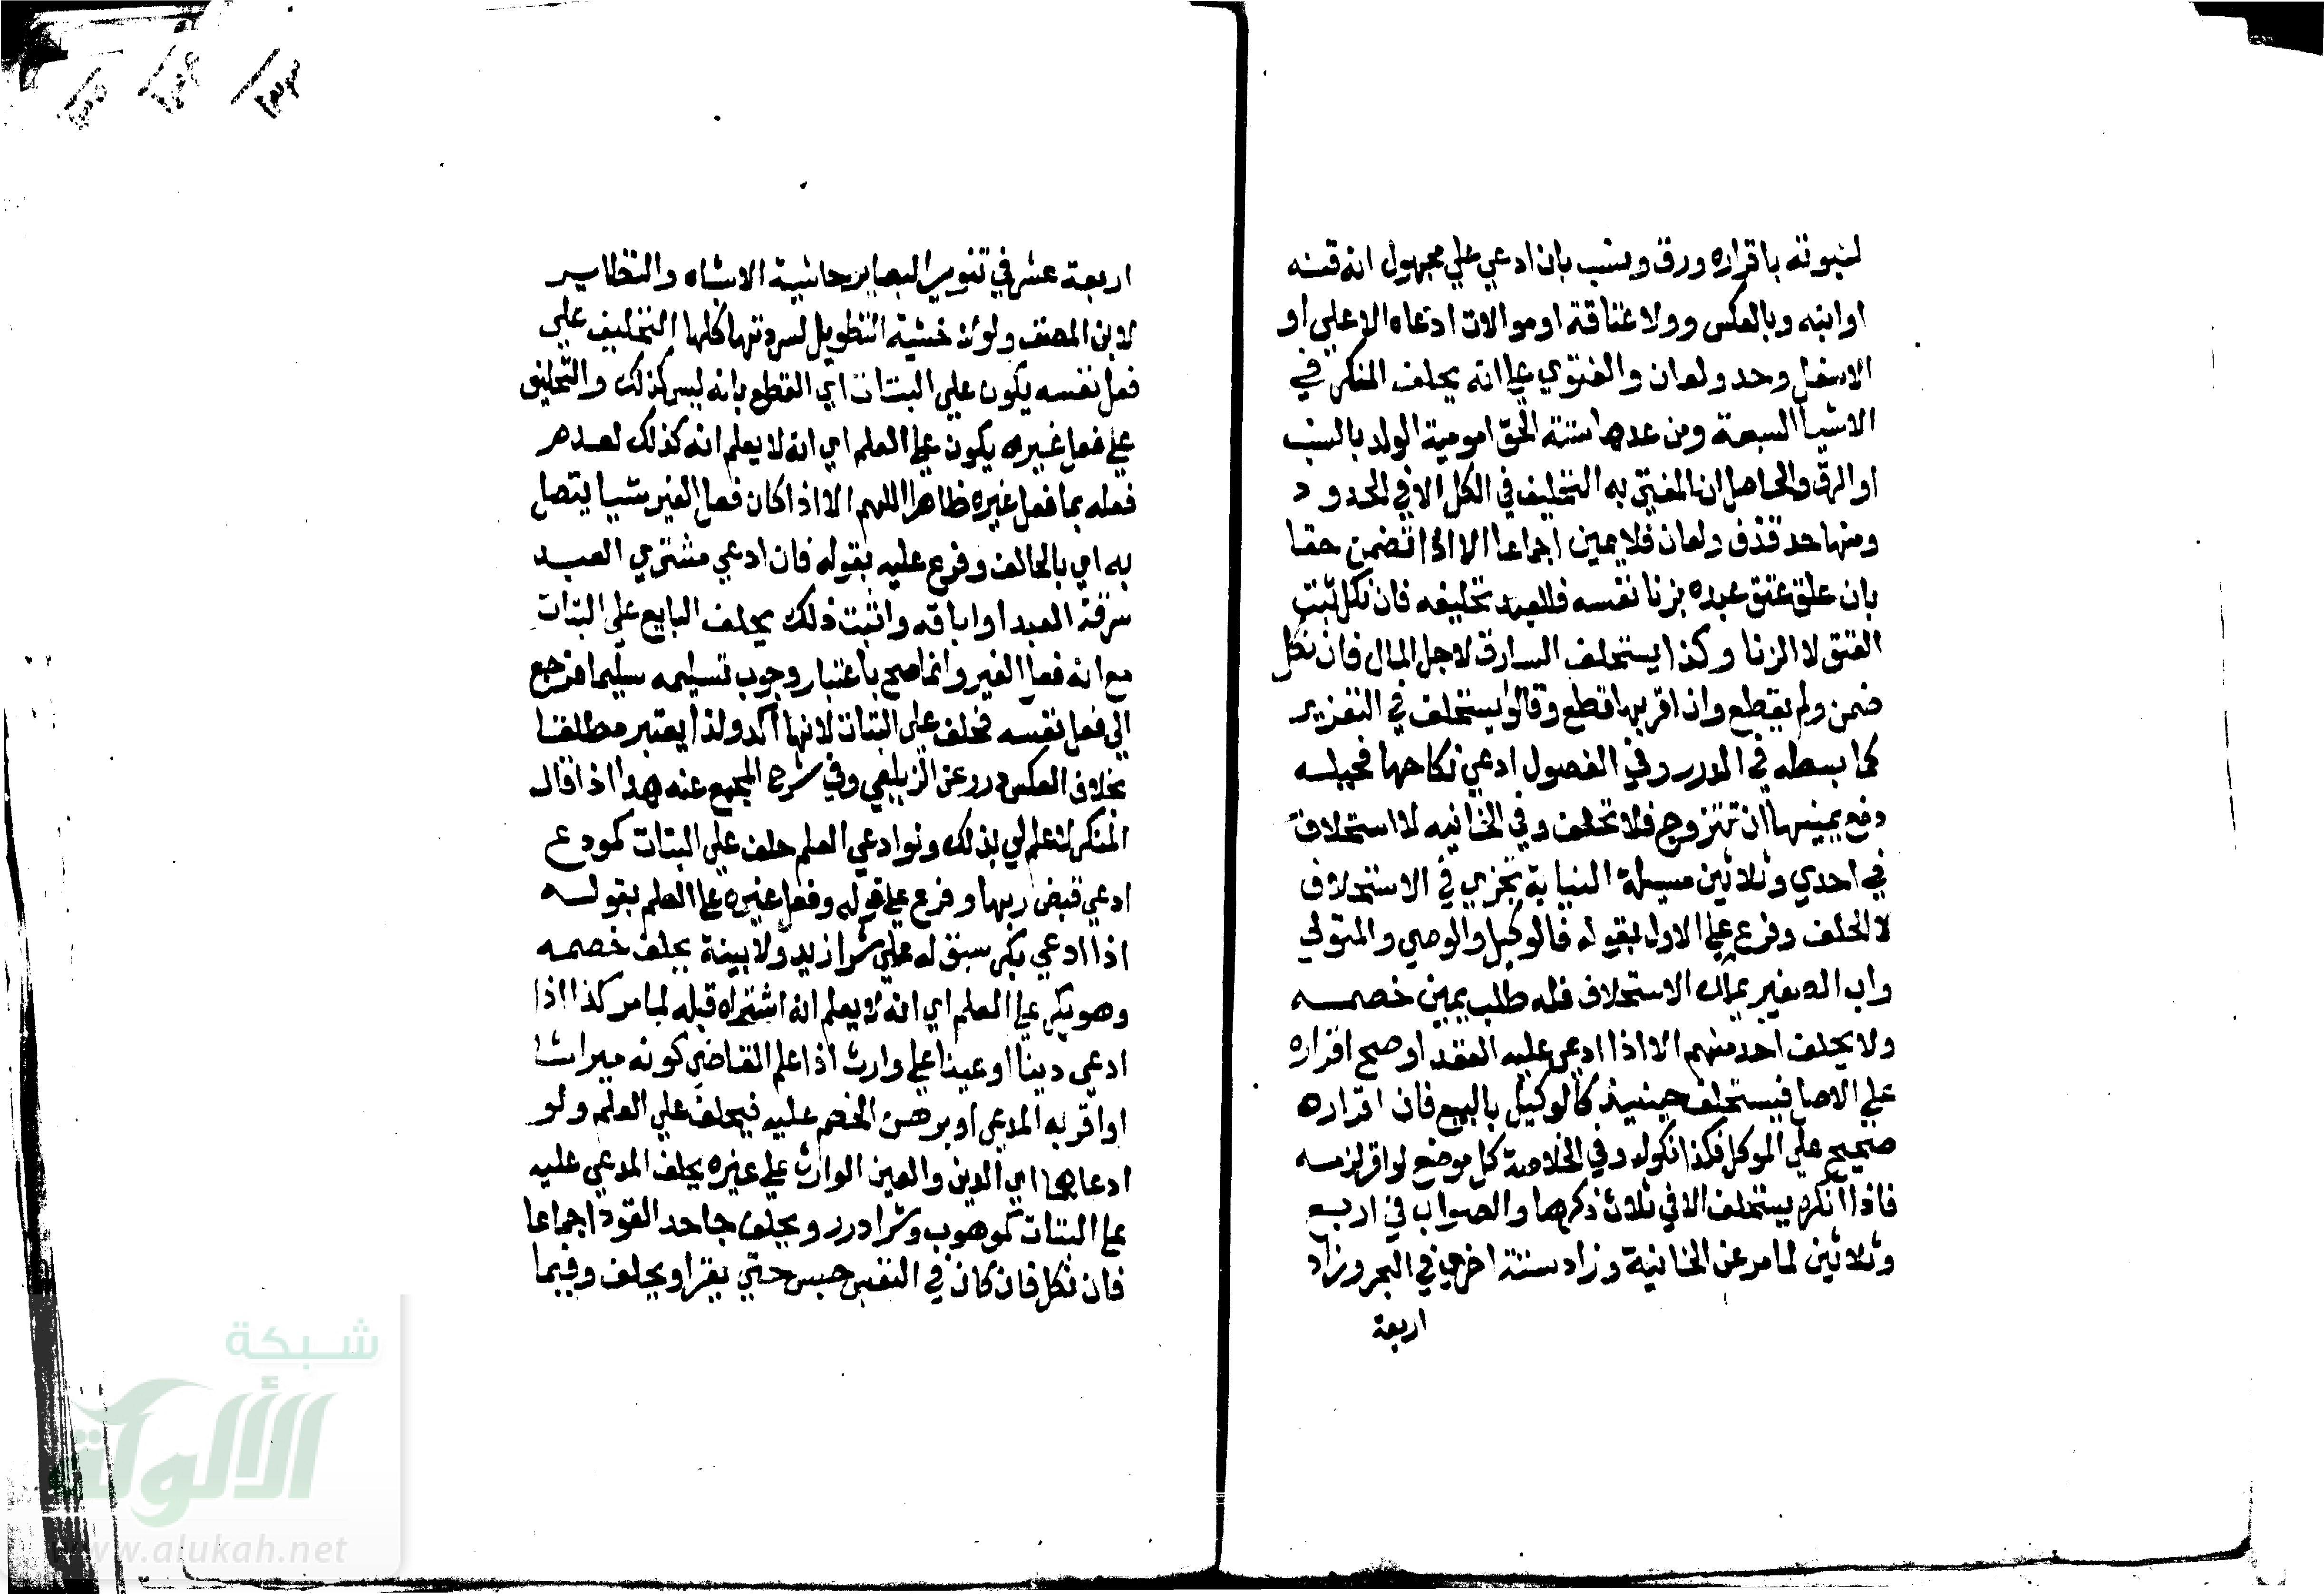 لثبوته باقراره ورق ونسب بان ادعي علي مجهول انه قنه
او ابنه وبالعكس وولا عتاقة او موالات ادعاه الاعلي او
الاسفل وحد ولعان والفتوي علي انه يحلف المنكر في
الاشيا السبعة ومن عدها ستة الحق امومية الولد بالنسب
او الرق والحاصل ان المفتي به التحليف في الكل الا في الحدود
ومنها حد قذف ولعان فلا يمين اجماعا الا اذا تضمن حقا
بان علق عتق عبده بزنا نفسه فللعبد تحليفه فان نكل ثبت
العتق لا الزنا وكذا يستحلف السارق لاجل المال فان نكل
ضمن ولم يقطع وان اقر بها قطع وقالوا يستحلف في التعزير
كما بسطه في الدرر وفي الفصول ادعي نكاحها فحيلة
دفع يمينها ان تتزوج فلا تحلف وفي الخانيه لا استحلاف
في احدي وثلاثين مسيلة النيابة تجزي في الاستحلاف
لا الحلف وفرع علي الاول بقوله فالوكيل والوصي والمتولي
واب الصغير يملك الاستحلاف فله طلب يمين خصمه
ولا يحلف احد منهم الا اذا ادعي عليه العقد او صح اقراره
علي الاصل فيستحلف حينيذ كالوكيل بالبيع فان اقراره
صحيح علي الموكل فكذا نكوله وفي الخلاصة كل موضع لو اقر لزمه
فاذا انكره يستحلف الا في ثلاث ذكرها والصواب في اربع
وثلاثين لما مر عن الخانية وزاد ستة اخري في البحر وزاد
اربعة
اربعة عشر في تنوير البصاير حاشية الاشباه والنظاير
لابن المصنف ولولا خشية التطويل لسردتها كلها التحليف علي
فعل نفسه يكون علي البتات اي القطع بانه ليس كذلك والتحليف
علي فعل غيره يكون علي العلم اي انه لا يعلم انه كذلك لعدم
فعله بما فعل غيره ظاهرا اللهم الا اذا كان فعل الغير شيا يتصل
به اي بالحالف وفرع عليه بقوله فان ادعي مشتري العبد
سرقة العبد او اباقه واثبت ذلك يحلف البايع علي البتات
مع انه فعل الغير وانما صح باعتبار وجوب تسليمه سليما فرجع
الي فعل نفسه فحلف علي البتات لانها اكد ولذا يعتبر مطلقا
بخلاف العكس درر عن الزيلعي وفي شرح المجمع عنه هذا اذا قال
المنكر لا علم لي بذلك ولو ادعي العلم حلف علي البتات كمودع
ادعي قبض ربها وفرع علي قوله وفعل غيره علي العلم بقوله
اذا ادعي بكر سبق له علي شرا زيد ولا بينة يحلف خصمه
وهو بكر علي العلم اي انه لا يعلم انه اشتراه قبله لما مر كذا اذا
ادعي دينا او عينا علي وارث اذا علم القاضي كونه ميراثا
او اقر به المدعي او برهن الخصم عليه فيحلف علي العلم ولو
ادعاهما اي الدين والعين الوارث علي غيره يحلف المدعي عليه
علي البتات كموهوب وشرا درر ويحلف جاحد القود اجماعا
فان نكل فان كان في النفس حبس حتي يقر او يحلف وفيما
شبكة
الألوكة
www.alukah.net